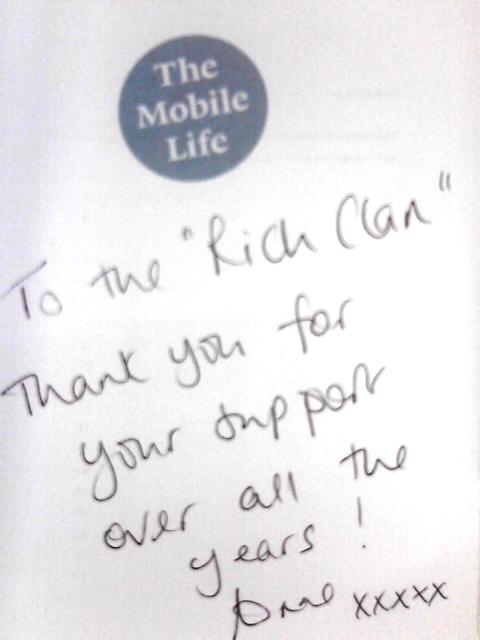 The
Mobile
Life
To the "Rich Clan"
Thank you for
your support
over all the
years!
xxxxx